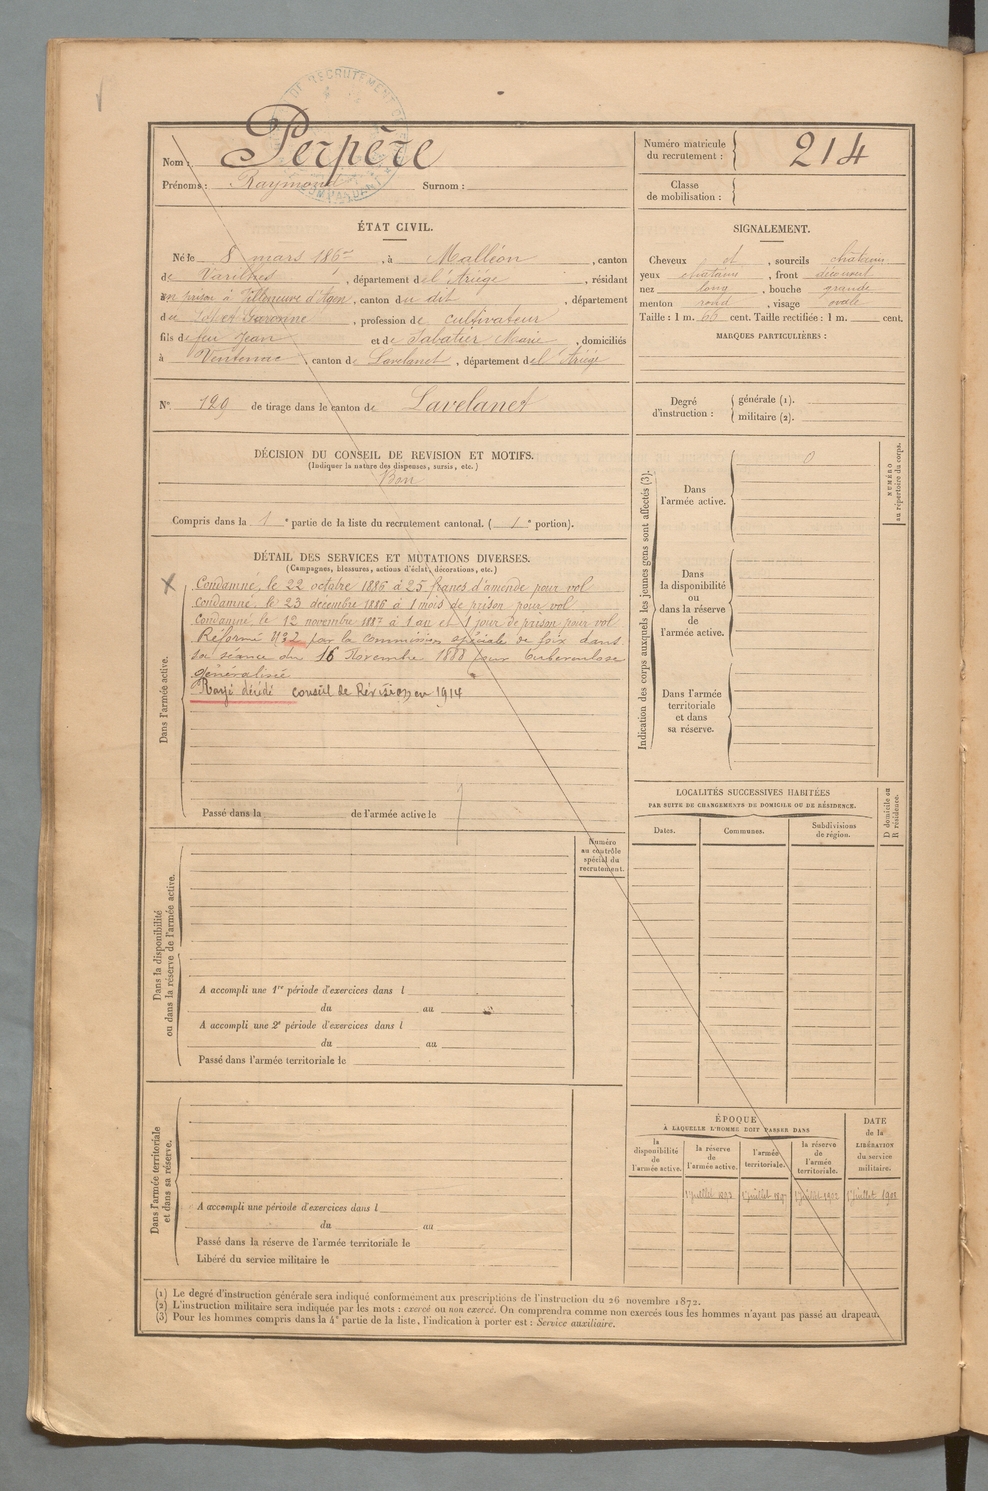 Nom : Perpère
Prénoms : Raymond Surnom :
Numéro matricule du recrutement : 214
Classe de mobilisation :
ÉTAT CIVIL.
Né le 8 mars 1867, à Malléon, canton
de Varilhes, département de l'Ariége, résidant
en prison à Villeneuve d'Agen, canton du dit, département
du Lot et Garonne, profession de cultivateur
fils de feu Jean et de Sabatier Marie, domiciliés
à Ventenac, canton de Lavelanet, département de l'Ariége
N° 129 de tirage dans le canton de Lavelanet
SIGNALEMENT.
Cheveux et, sourcils chatains
yeux chatains, front découvert
nez long, bouche grande
menton rond, visage ovale
Taille : 1 m. 66 cent. Taille rectifiée : 1 m. cent.
MARQUES PARTICULIÈRES :
Degré d'instruction : générale (1).
militaire (2).
DÉCISION DU CONSEIL DE REVISION ET MOTIFS.
(Indiquer la nature des dispenses, sursis, etc.)
Bon
Compris dans la 1e partie de la liste du recrutement cantonal. (1e portion).
DÉTAIL DES SERVICES ET MUTATIONS DIVERSES.
(Campagnes, blessures, actions d'éclat, décorations, etc.)
Dans l'armée active.
Condamné, le 22 octobre 1886 à 25 francs d'amende pour vol
Condamné, le 23 décembre 1886 à 1 mois de prison pour vol.
Condamné, le 12 novembre 1887 à 1 an et 1 jour de prison pour vol
Réformé N°2 par la Commission spéciale de foix dans
sa séance du 16 Novembre 1888 pour tuberculose
généralisée
Rayé décédé conseil de Révision en 1914
Passé dans la de l'armée active le
Indication des corps auxquels les jeunes gens sont affectés (3).
NUMÉRO au répertoire du corps.
Dans l'armée active.
0
Dans la disponibilité ou dans la réserve de l'armée active.
Dans l'armée territoriale et dans sa réserve.
LOCALITÉS SUCCESSIVES HABITÉES
PAR SUITE DE CHANGEMENTS DE DOMICILE OU DE RÉSIDENCE.
D domicile ou R résidence.
Dates. Communes. Subdivisions de région.
Dans la disponibilité ou dans la réserve de l'armée active.
Numéro au contrôle spécial du recrutement.
A accompli une 1re période d'exercices dans l
du au
A accompli une 2e période d'exercices dans l
du au
Passé dans l'armée territoriale le
Dans l'armée territoriale et dans sa réserve.
A accompli une période d'exercices dans l
du au
Passé dans la réserve de l'armée territoriale le
Libéré du service militaire le
ÉPOQUE
À LAQUELLE L'HOMME DOIT PASSER DANS
la disponibilité de l'armée active.
la réserve de l'armée active.
l'armée territoriale.
la réserve de l'armée territoriale.
DATE de la LIBÉRATION du service militaire.
1 juillet 1893 1 juillet 1 juillet 1902 1 juillet 1908
(1) Le degré d'instruction générale sera indiqué conformément aux prescriptions de l'instruction du 26 novembre 1872.
(2) L'instruction militaire sera indiquée par les mots : exercé ou non exercé. On comprendra comme non exercés tous les hommes n'ayant pas passé au drapeau.
(3) Pour les hommes compris dans la 4e partie de la liste, l'indication à porter est : Service auxiliaire.